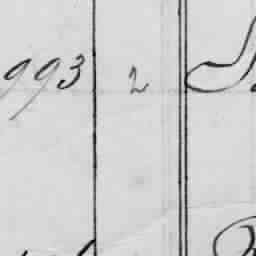 993 2